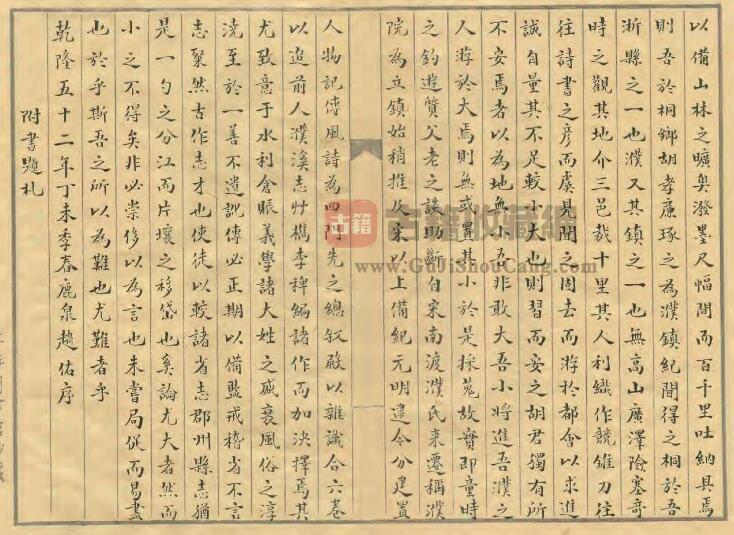 以備山林之曠奧潑墨尺幅間而百千里吐納具焉
則吾於桐鄉胡孝廉琢之為濮鎮紀聞得之桐於吾
淛縣之一也濮又其鎮之一也無高山廣澤險塞奇
時之觀其地介三邑裁十里其人利織作競錐刀注
往詩書之彥而虞見聞之周去而游於都會以求進
誠自量其不足較小大也則習而安之胡君獨有所
不安焉者以為地無小吾非敢大吾小將進吾濮之
人游於大焉則無或置其小於是採蒐故實即童時
之釣遊質父老之談助斷自宋南渡濮氏來遷稱濮
院為立鎮始稍推及宋以上備紀元明逮今分建置
人物記傳風詩為四門先之總敘殿以雜識合六卷
以追前人濮溪志艸檇李稗編諸作而加決擇焉其
尤致意于水利倉賑義學諸大姓之盛衰風俗之淳
澆至於一善不遺訓傳必正期以備監戒稽省不言
志槩然古作志才也使徒以較諸省志郡州縣志猶
是一勺之分江而片壤之移岱也奚論尤大者然而
小之不得矣非必崇侈以為言也未嘗局促而易盡
也於乎斯吾之所以為難也尤難者乎
乾隆五十二年丁未季春鹿泉趙佑序
附書題札
古籍
古籍收藏網
www.GuJiShouCang.com